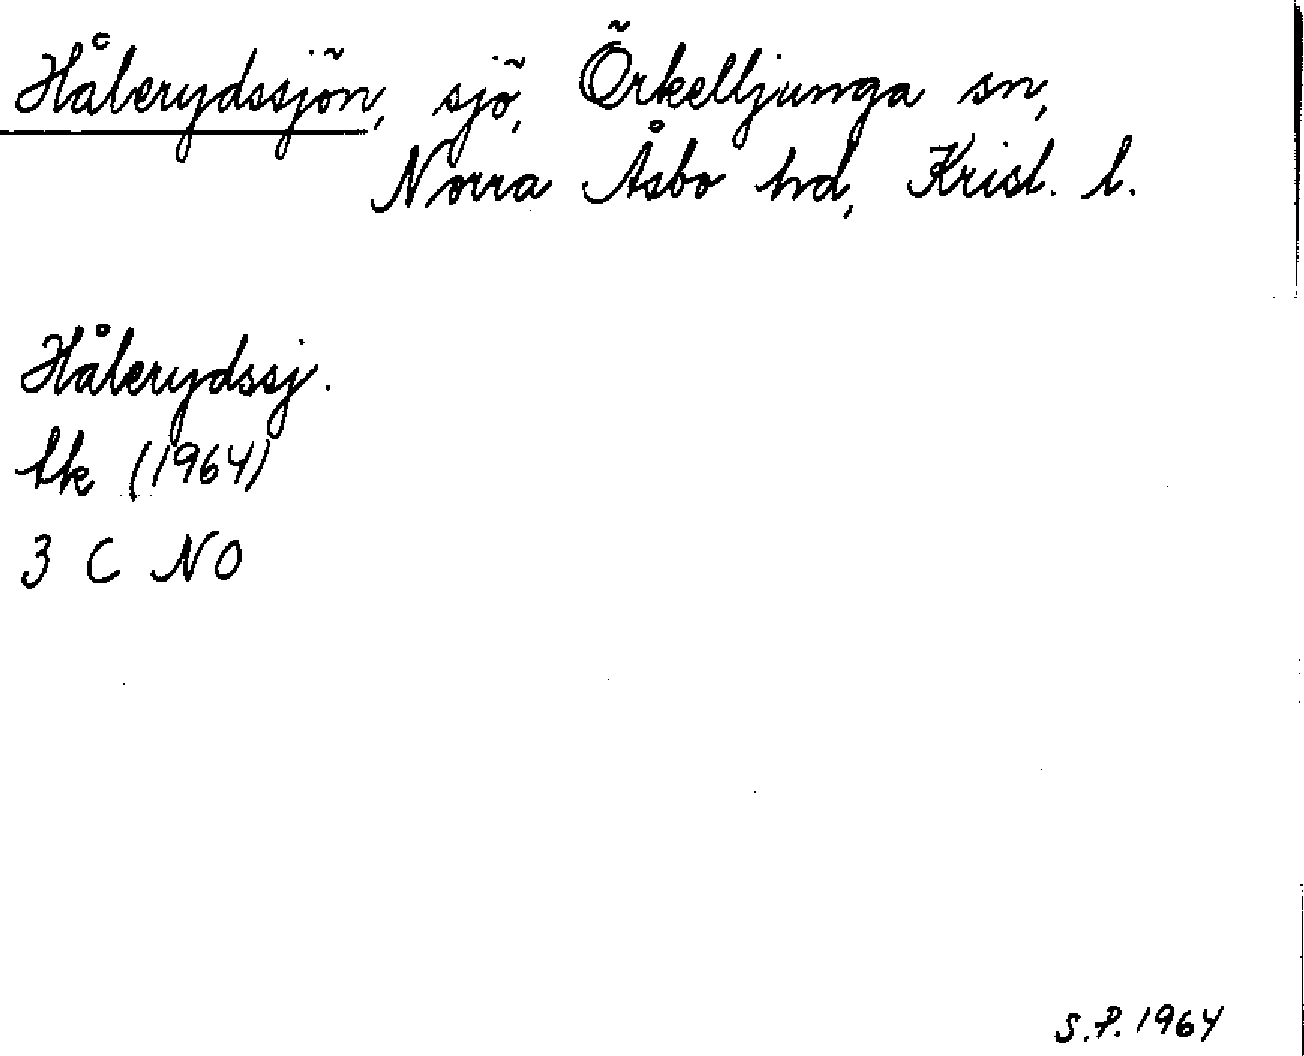 Hålerydssjön, sjö, Örkelljunga sn,
Norra Åsbo hd, Krist. l.
Hålerydssj.
tk (1964)
3 C NO
S.P. 1964